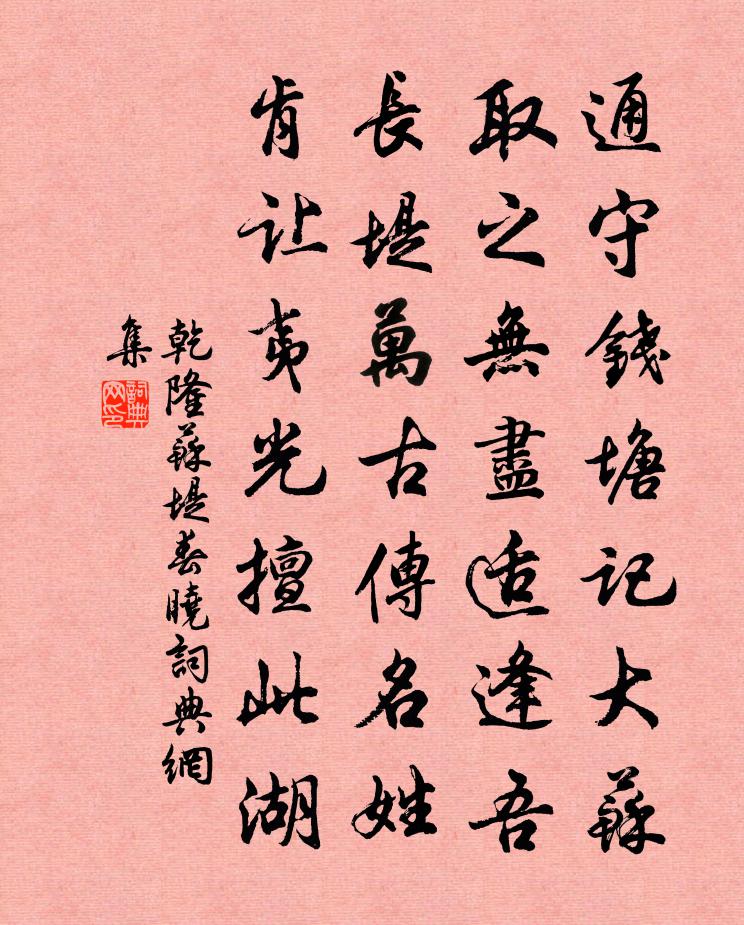 通守錢塘記大蘇
取之無盡适逢吾
長堤萬古傳名姓
肯让夷光擅此湖
乾隆蘇堤春曉詞典網
集
詞典网印